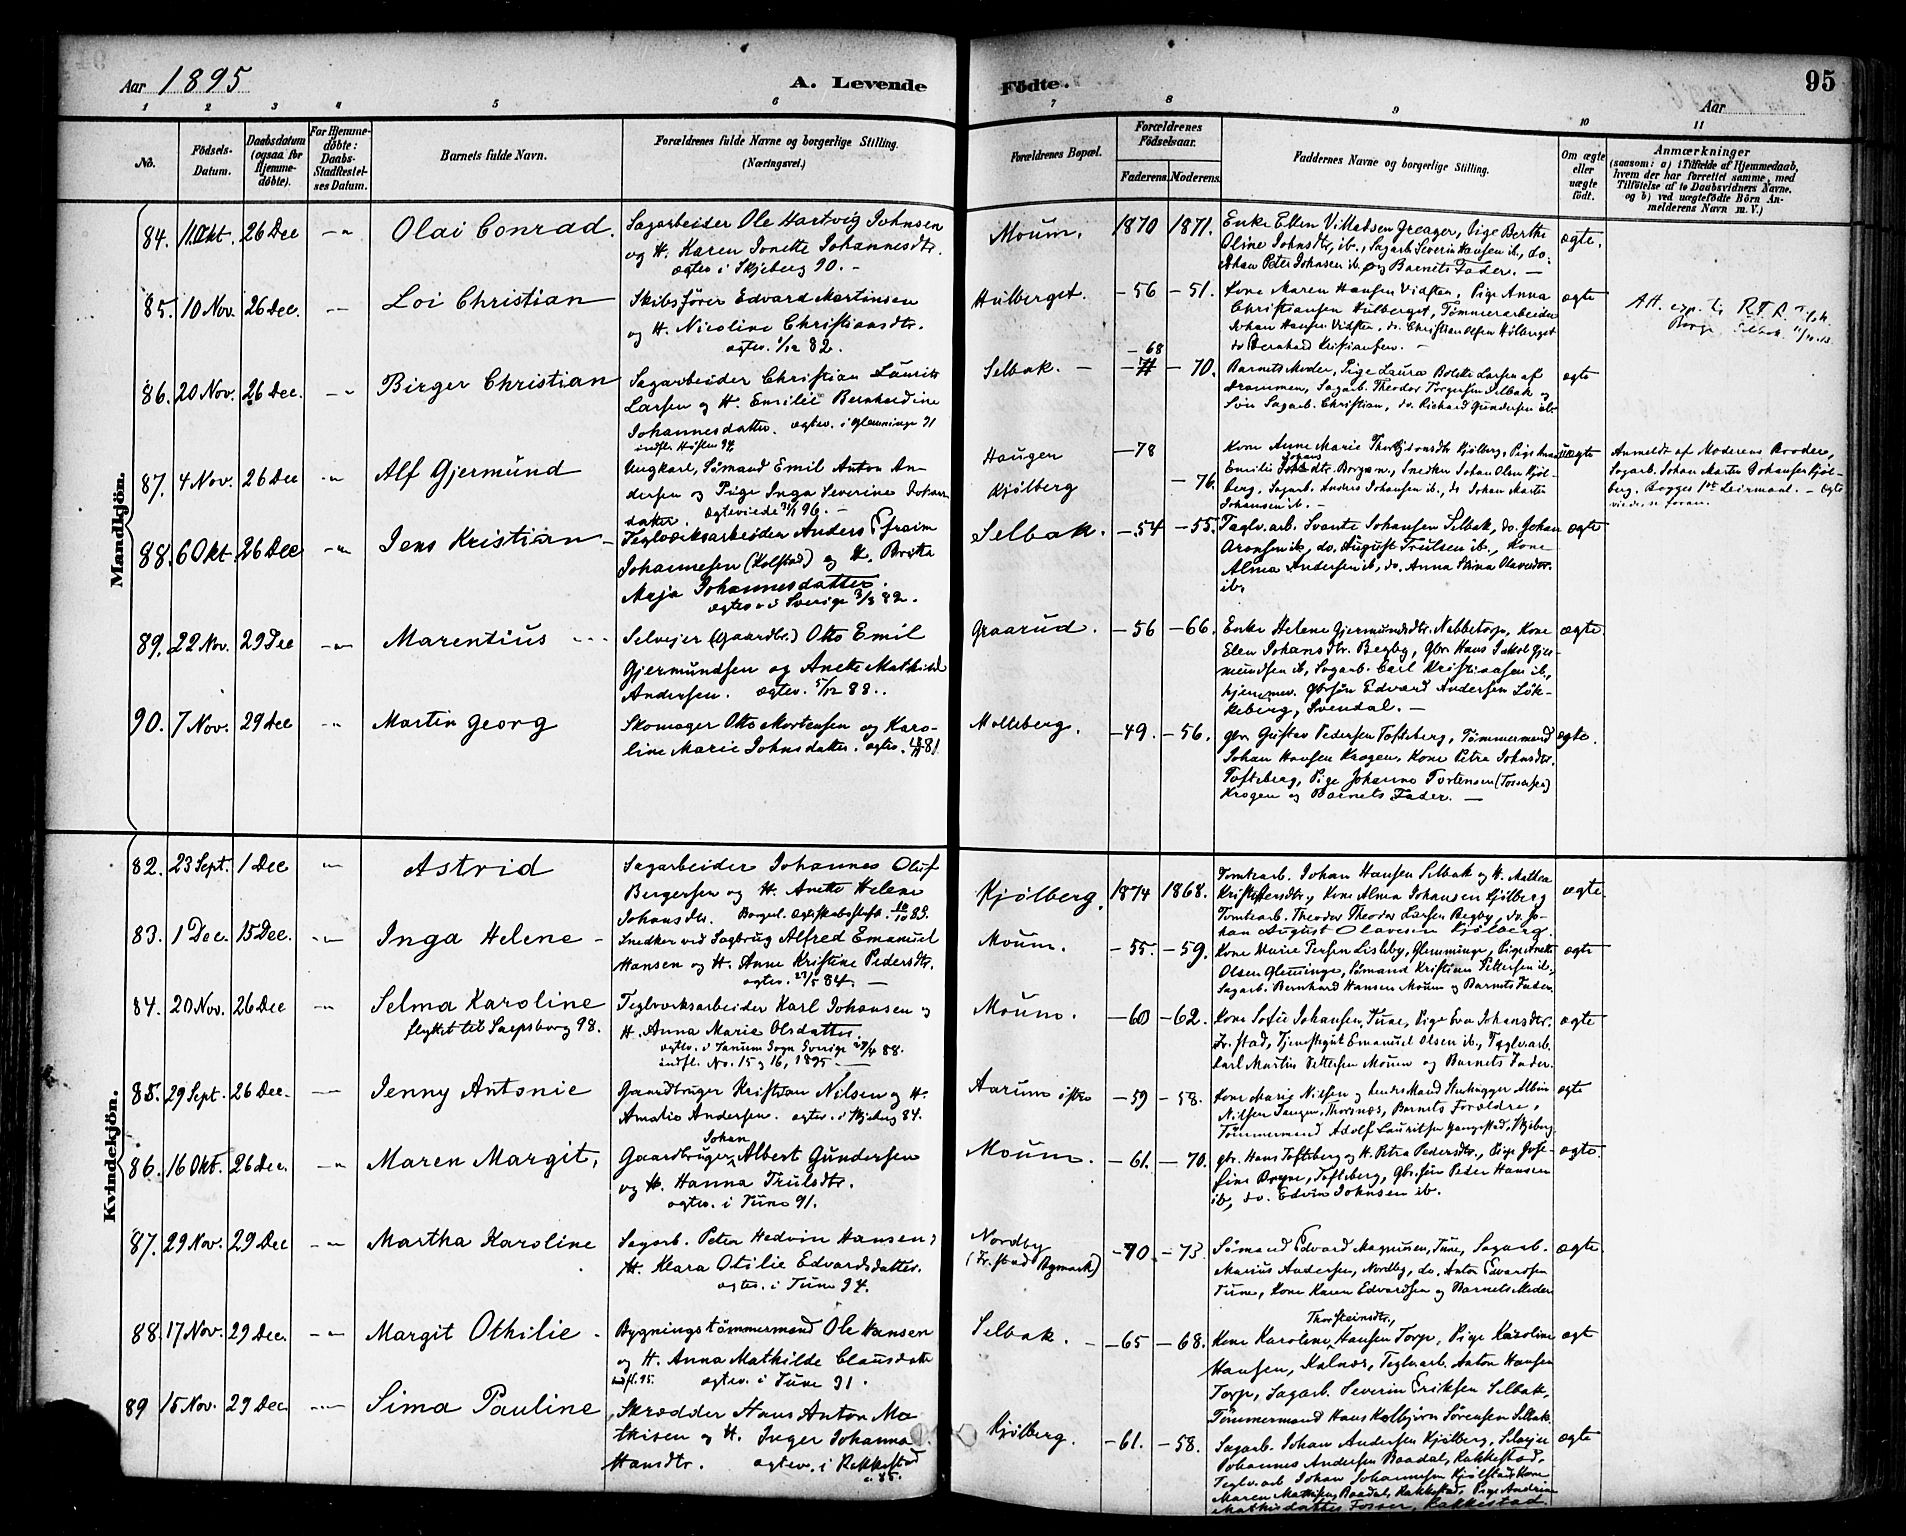 Aar 1895
A. Levende
Födte.
95
Aar
1 2 3 4 5 6 7 8 9 10 11
No.
Födsels-Datum.
Daabsdatum (ogsaa for Hjemme-døbte).
For Hjemme-døbte: Daabs-Stadfæstelses Datum.
Barnets fulde Navn.
Forældrenes fulde Navne og borgerlige Stilling.
(Næringsvei.)
Forældrenes Bopæl.
Forældrenes Födselsaar.
Faderens. Moderens.
Faddernes Navne og borgerlige Stilling.
Om ægte eller uægte födt.
Anmærkninger
(saasom: a) i Tilfælde af Hjemmedaab,
hvem der har forrettet samme, med
Tilføielse af to Daabsvidners Navne.
og b) ved uægtefödte Börn An-
melderens Navn m. V.)
Mandkjön.
84. 11 Okt. 26 Dec Olai Conrad.
Sagarbeider Ole Hartvig Johnsen
og H. Karen Jonette Johannesdtr.
ægtev. i Skjeberg 90. –
Moum. 1870 1871.
Enke Ellen Villadsen Greager, Pige Berthe
Oline Johnsdtr, ib., Sagarb. Severin Hansen ib., do.
Johan Peter Johnsen ib. og Barnets Fader. –
ægte.
85. 10 Nov. 26 Dec. Loi Christian
Skibsfører Edvard Martinsen
og H. Nicoline Christiansdtr.
ægtev. 1/12 82.
Hulberget. – 56 – 51.
Kone Maren Hansen Vidsten, Pige Anna
Christiansen Hulberget, Tømmerarbeider
Johan Hansen Vidsten, do. Christian Olsen Hulberget
do Bernhard Kristiansen. –
ægte
86. 20 Nov. 26 Dec. Birger Christian
Sagarbeider Christian Laurits
Larsen og H. Emilie Bernhardine
Johannesdatter. ægtev. i Glemminge 91
indfl. Høsten 94
Selbak. – 68 – 70.
Barnets Moder, Pige Laura Bolette Larsen af
Drammen, Sagarb. Theodor Torgersen Selbak og
Søn Sagarb. Christian, do. Richard Gundersen ib.
ægte
87. 4 Nov. 26 Dec Alf Gjermund
Ungkarl, Sømand Emil Anton An-
dersen og Pige Inga Severine Johans
datter. Ægteviede 96. –
Haugen – 78
Kjølberg – 76.
Kone Anne Marie Kjølberg, Pige
Emilie Borgen, Snedker Johan Olsen Kjøl-
berg, Sagarb. Anders Johansen ib., do Johan Martin
Johansen ib. –
uægte
Anmeldt af Moderens Broder,
Sagarb. Johan Martin Johansen Kjøl-
berg. Begges 1ste Leiermaal. – Ægte
viede, se foran.
88. 6 Okt. 26 Dec Jens Kristian
Teglværksarbeider Anders Efraim
Johannesen (Kolstad) og H. Britta
Maja Johannesdatter.
ægtev. i Sverige 3/3 82.
Selbak. – 54 – 55.
Teglv.arb. Svante Johansen Selbak, do. Johan
Aronsen ib, do. August Trulsen ib., Kone
Alma Andersen ib., do. Anna Stina Olavesdtr.
ib.
ægte
89. 22 Nov. 29 Dec Marentius
Selveier (Gaardbr.) Otto Emil
Gjermundsen og Anette Mathilde
Andersen. ægtev. 5/12 88.
Graarud. – 56 – 66.
Enke Helene Gjermundsdtr. Nabbetorp, Kone
Elen Johansdtr. Begby, Gbr. Hans Jakob Gjer-
mundsen ib., Sagarb. Carl Kristiansen ib.,
hjemmev. Gbrsøn Edvard Andersen Løk-
keberg, Svendal. –
ægte.
90. 7 Nov. 29 Dec Martin Georg
Skomager Otto Mortensen og Karo-
line Marie Johnsdatter. ægtev. 81.
Molleberg. – 49. – 56.
Gbr. Gustav Pedersen Tofteberg, Tømmermand
Johan Hansen Krogen, Kone Petra Johnsdtr.
Tofteberg, Pige Johanna Tortensen
Krogen og Barnets Fader. –
ægte.
Kvindekjön.
82. 23 Sept. 1 Dec Astrid
Sagarbeider Johannes Oluf
Bergersen og H. Anette Helene
Johansdtr. Borgerl. Ægteskabsstift. 10/10 93.
Kjølberg. 1874 1868.
Tomtearb. Johan Hansen Selbak og H. Mathea
Kristiansdtr., Kone Alma Johansen Kjølberg
Tomtearb. Theodor Larsen Begby, do. Jo-
han August Olavesen Kjølberg.
ægte.
83. 1 Dec. 15 Dec. Inga Helene
Snedker ved Sagbrug Alfred Emanuel
Hansen og H. Anne Kristine Pedersdtr.
ægtev. 27/5 84. –
Moum. – 55. – 59.
Kone Marie Persen Lisleby, Glemminge, Pige Anette
Olsen Glemminge, Sømand Kristian Pettersen ib.,
Sagarb. Bernhard Hansen Moum og Barnets Fader.
ægte
84. 20 Nov. 26 Dec Selma Karoline
flyttet til Sarpsborg 98.
Teglværksarbeider Karl Johansen og
H. Anna Marie Olsdatter.
ægtev. i Tanum Sogn Sverige 29/4 88.
indfl. No. 15 og 16, 1895. –
Moum. – 60 – 62.
Kone Sofie Johansen, Tune, Pige Eva Johansdtr.
Fr.stad, Tjenestgut Emanuel Olsen ib., Teglv.arb.
Carl Martin Pettersen Moum og Barnets Fader.
ægte
85. 29 Sept. 26 Dec. Jenny Antonie
Gaardbruger Kristian Nilsen og H.
Amalie Andersen. ægtev. i Skjeberg 84.
Aarum østre – 59 – 58.
Kone Marie Nilsen og hendes Mand Stenhugger Albin
Nilsen Tangen, Thorsnæs, Barnets Forældre,
Tømmermand Adolf Lauritsen Gangestad, Skjeberg
ægte
86. 16 Okt. 26 Dec. Maren Margit.
Gaardbruger Johan Albert Gundersen
og H. Hanna Trulsdtr.
ægtev. i Tune 91.
Moum. – 61. – 70.
Gbr. Hans Tofteberg og H. Petra Pedersdtr., Pige Jose-
fine Tofteberg, Gbr.søn Peder Hansen
ib, do. Edvin Johnsen ib.
ægte.
87. 29 Nov. 29 Dec Martha Karoline
Sagarb. Peter Hedvin Hansen,
H. Klara Otilie Edvardsdatter.
ægtev. i Tune 94.
Nordby
(Fr.stad Bymark) – 70. – 73.
Sømand Edvard Magnusen, Tune, Sagarb.
Marius Andersen, Nordby, do. Anton Edvardsen
Tune, Kone Karen Edvardsen og Barnets Moder
ægte.
88. 17 Nov. 29 Dec. Margit Othilie.
Bygningstømmermand Ole Hansen
og H. Anna Mathilde Clausdatter
indfl. 95. ægtev. i Tune 91.
Selbak. – 65 – 68.
Thorsteinsdtr.,
Kone Karoline Hansen Torp, Pige Karoline
Hansen, Kalnæs, Teglv.arb. Anton Hansen
Torp, Sagarb. Severin Eriksen Selbak,
Tømmermand Hans Kolbjørn Sørensen Selbak.
ægte
89 15 Nov. 29 Dec. Sima Pauline
Skrædder Hans Anton Ma-
thisen og H. Inger Johanna
Hansdtr. ægtev. i Rakkestad
85.
Kjølberg. – 61. – 58.
Sagarb. Johan Andersen Kjølberg, Selveier
Johannes Andersen Baadal, Rakkestad,
Teglv.arb Johan Johannesen Kjølstad, Kone
Maren Mathisen, Baadal, Rakkestad, Pige Andrine
Mathisdatter Fosser, Rakkestad.
ægte